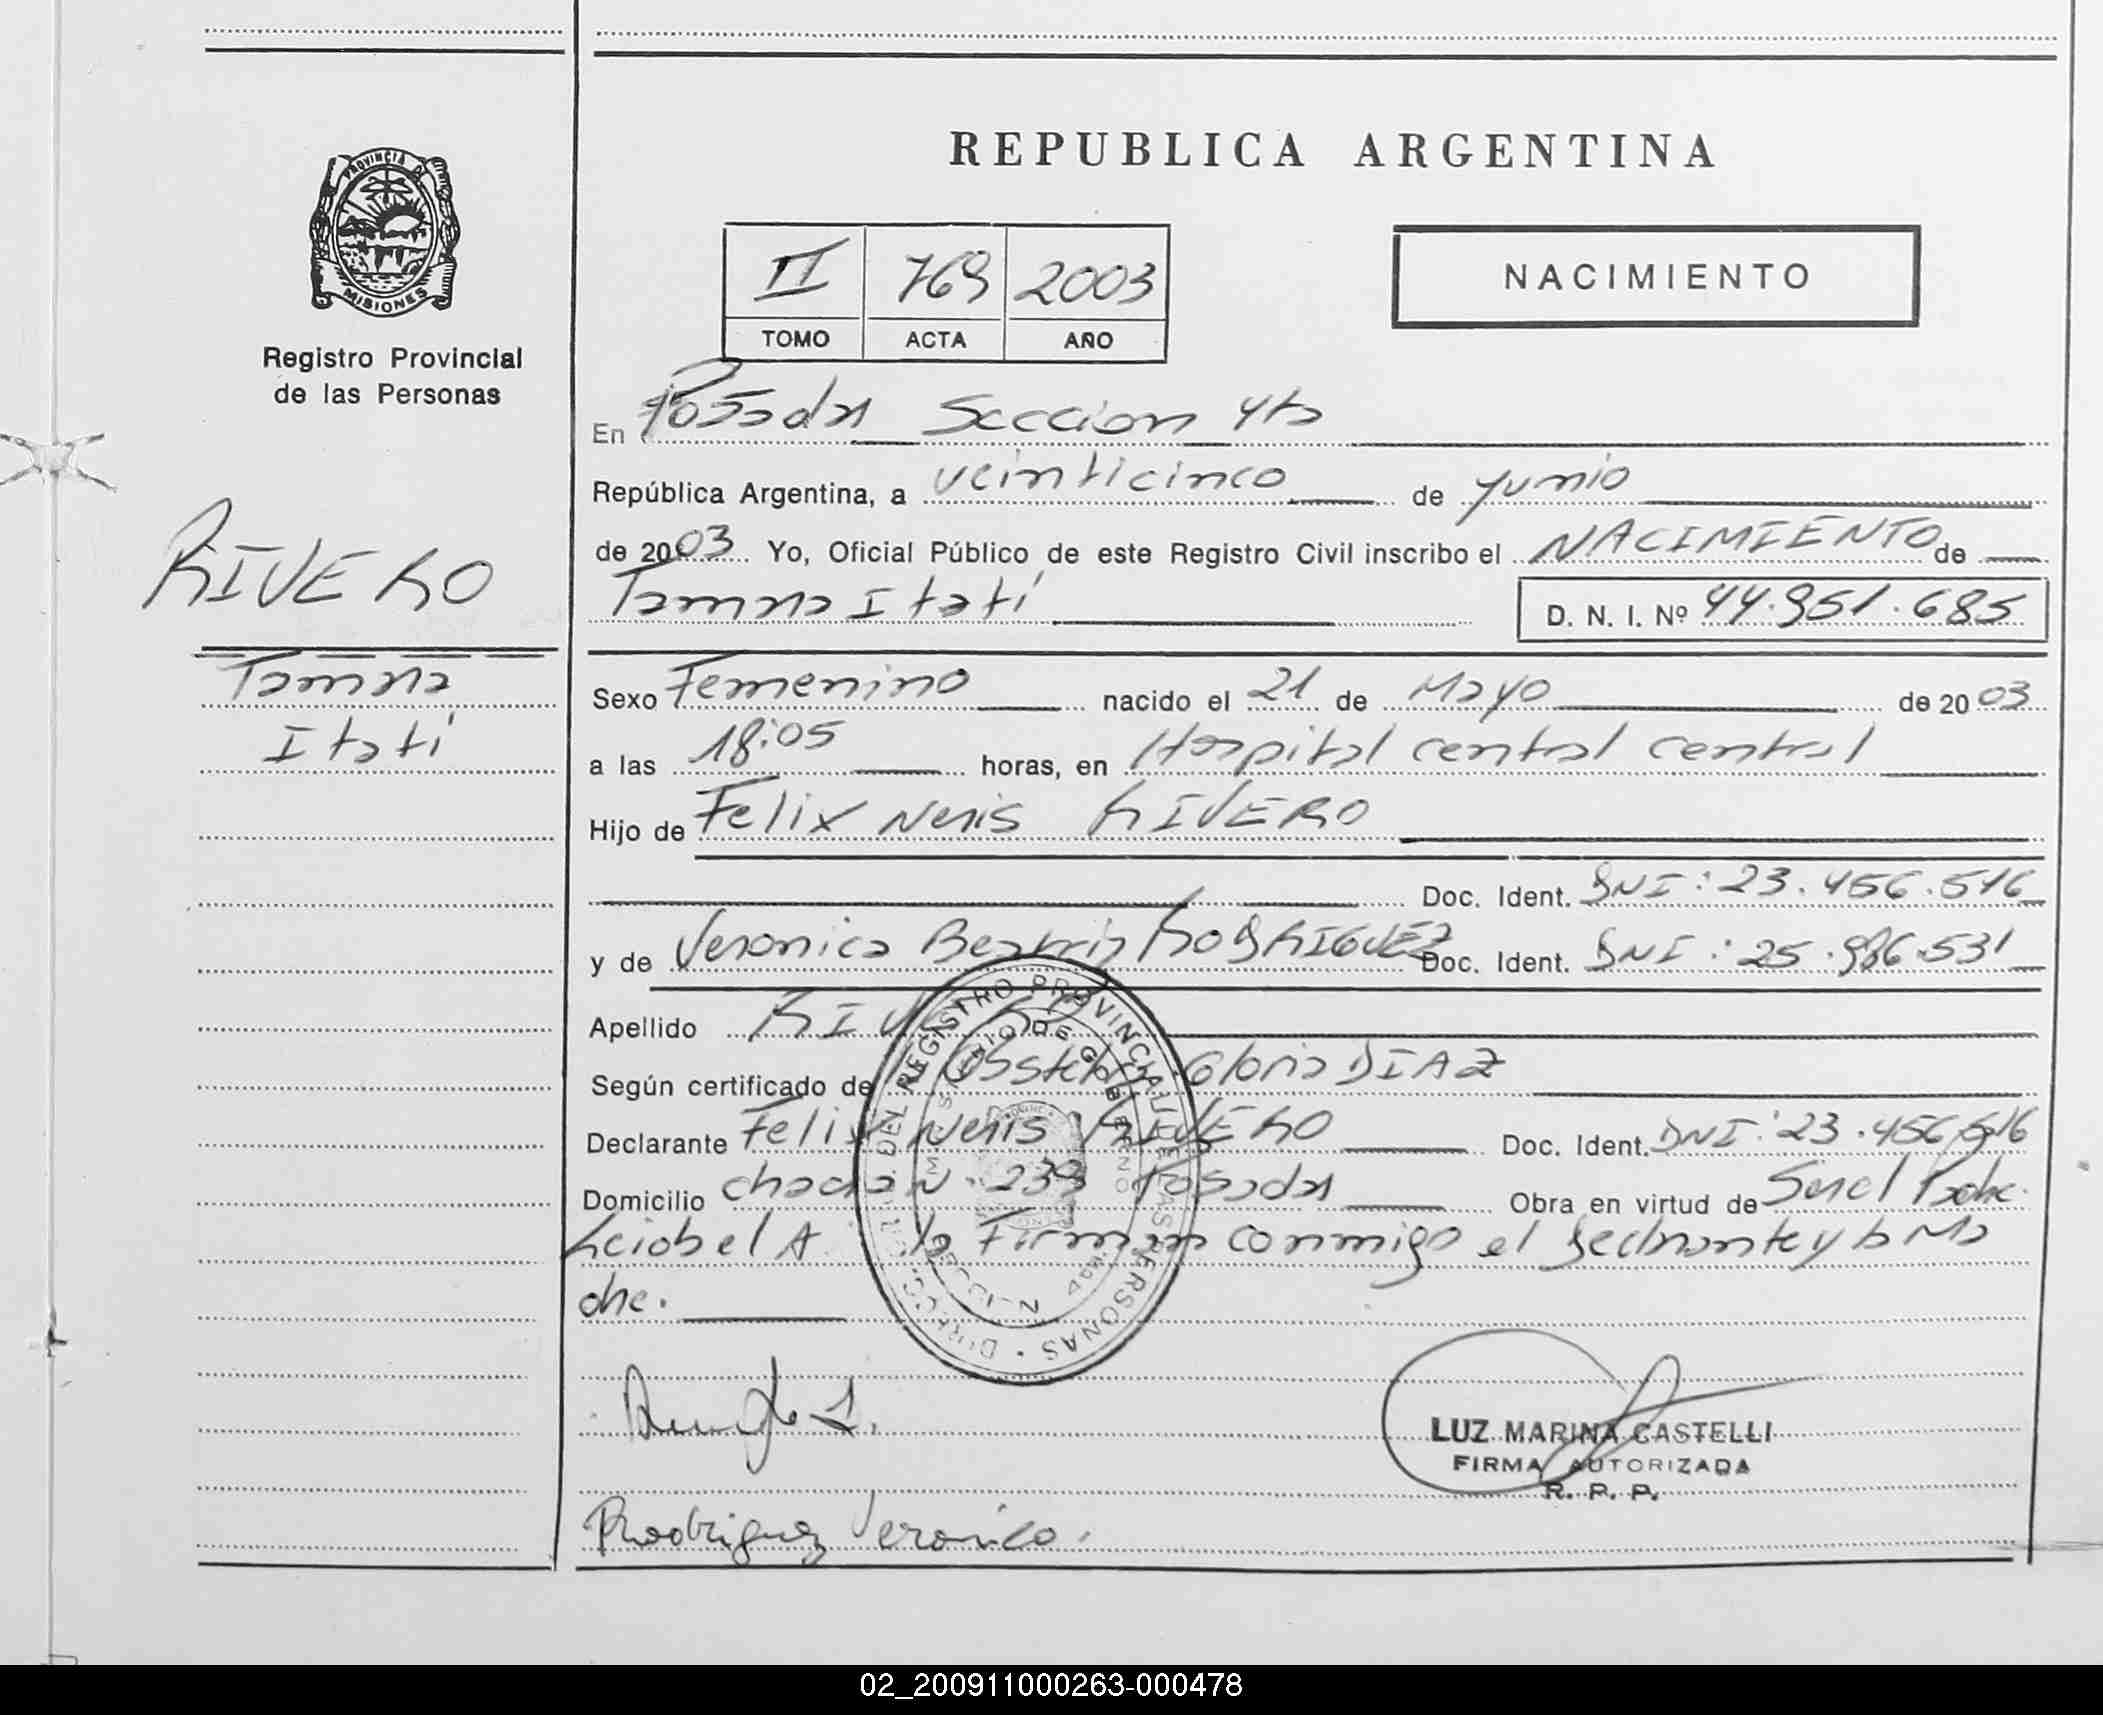 REPUBLICA ARGENTINA
PROVINCIA DE
MISIONES
Registro Provincial
de las Personas
II 769 2003
TOMO ACTA AÑO
NACIMIENTO
En Posadas Seccion 4ta
República Argentina, a veinticinco de Junio
de 2003 Yo, Oficial Público de este Registro Civil inscribo el NACIMIENTO de
Tamara Itatí D. N. I. Nº 44.951.685
RIVERO
Tamara
Itatí
Sexo Femenino nacido el 21 de Mayo de 2003
a las 18:05 horas, en Hospital central central
Hijo de Felix Neris RIVERO
Doc. Ident. DNI: 23.456.516
y de Veronica Beatriz RODRIGUEZ Doc. Ident. DNI: 25.986.531
Apellido RIVERO
Según certificado de Obstetra Gloria DIAZ
Declarante Felix Neris RIVERO Doc. Ident. DNI: 23.456.516
Domicilio chacra N. 239 Posadas Obra en virtud de Ser el Padre.
Firman conmigo el declarante y la Ma
dre.
DIRECCION DEL REGISTRO PROVINCIAL DE LAS PERSONAS
MINISTERIO DE GOBIERNO
LUZ MARINA CASTELLI
FIRMA AUTORIZADA
R. P. P.
Rodriguez Veronica.
02_200911000263-000478